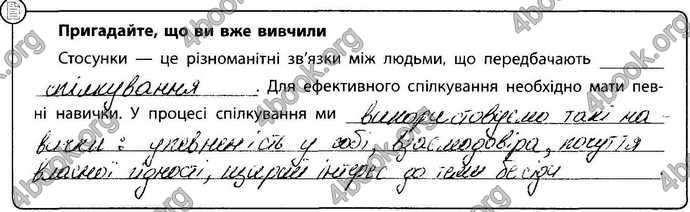 Пригадайте, що ви вже вивчили
Стосунки — це різноманітні зв'язки між людьми, що передбачають
спілкування. Для ефективного спілкування необхідно мати пев-
ні навички. У процесі спілкування ми використовуємо такі на-
вички: упевненість у собі, взаємодовіра, почуття
власної гідності, щирий інтерес до теми бесіди.
4book.org